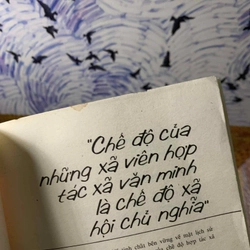 "Chế độ của
những xã viên hợp
tác xã văn minh
là chế độ xã
hội chủ nghĩa"